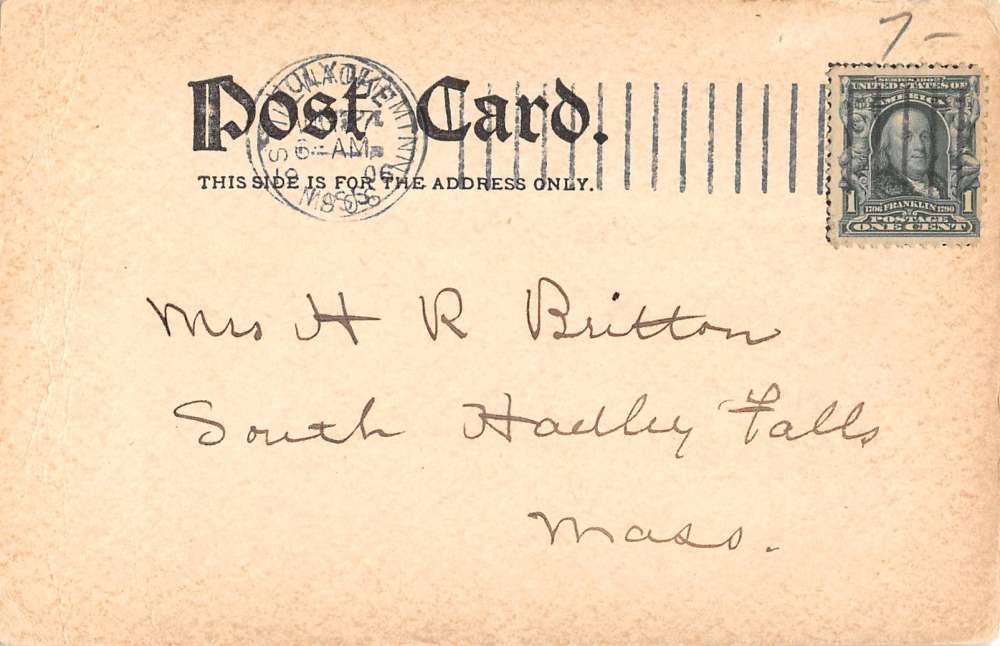 7-
Post Card.
THIS SIDE IS FOR THE ADDRESS ONLY.
6-AM
06
MASS
SERIES 1902
UNITED STATES OF
AMERICA
1706 FRANKLIN 1790
1 POSTAGE 1
ONE CENT
Mrs H R Britton
South Hadley Falls
Mass.